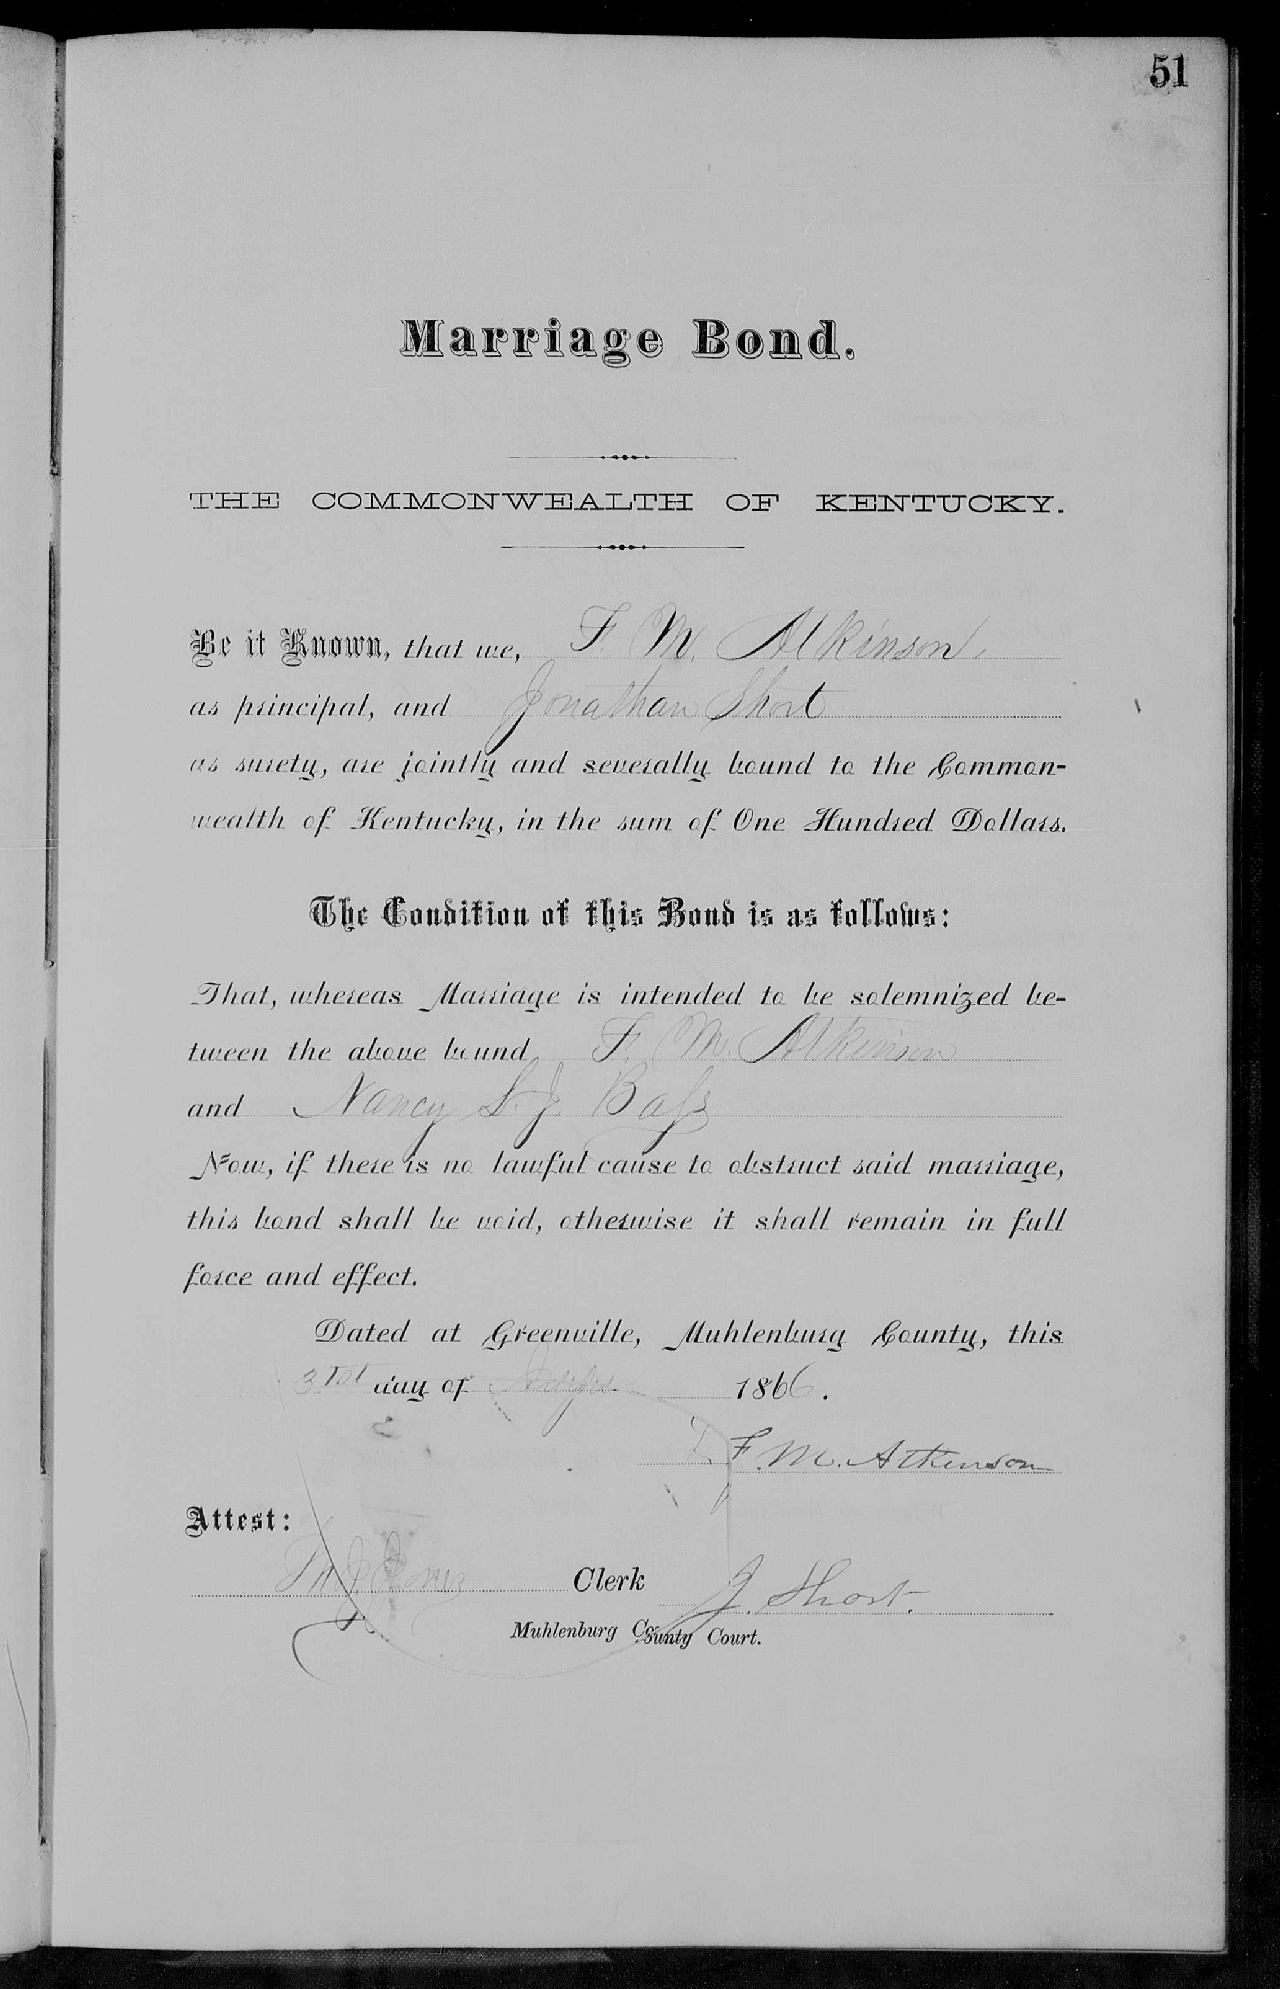 51
Marriage Bond.
THE COMMONWEALTH OF KENTUCKY.
Be it Known, that we, F. M. Atkinson.
as principal, and Jonathan Short
as surety, are jointly and severally bound to the Common-
wealth of Kentucky, in the sum of One Hundred Dollars.
The Condition of this Bond is as follows:
That, whereas Marriage is intended to be solemnized be-
tween the above bound F. M. Atkinson
and Nancy S. J. Baſs
Now, if there is no lawful cause to obstruct said marriage,
this bond shall be void, otherwise it shall remain in full
force and effect.
Dated at Greenville, Muhlenburg County, this
31st day of 1866.
F. M. Atkinson
Attest:
Clerk J. Short.
Muhlenburg County Court.